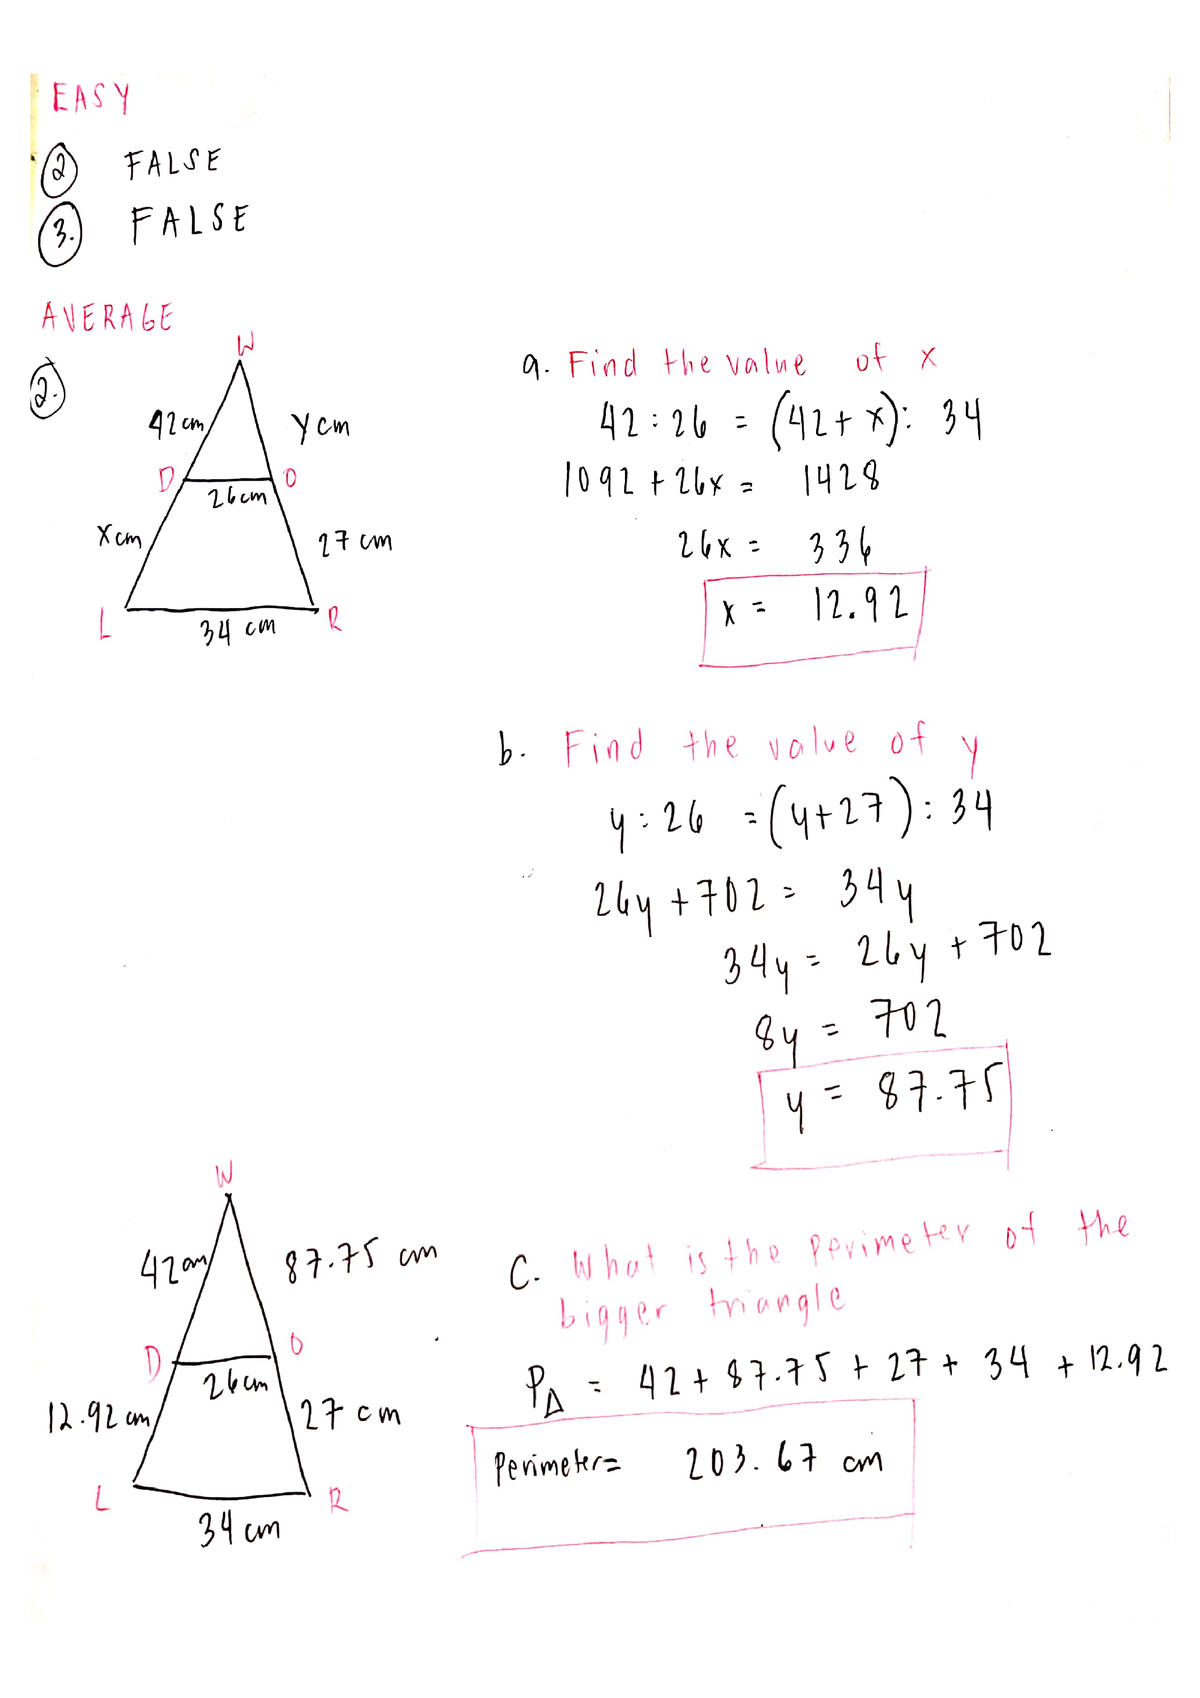 EASY
2 FALSE
3. FALSE
AVERAGE
2.
W
42cm
y cm
D
O
26cm
x cm
27 cm
L
34 cm
R
a. Find the value of x
42 : 26 = (42 + x) : 34
1092 + 26x = 1428
26x = 336
x = 12.92
b. Find the value of y
y : 26 = (y + 27) : 34
26y + 702 = 34y
34y = 26y + 702
8y = 702
y = 87.75
W
42cm
87.75 cm
D
O
26cm
12.92 cm
27 cm
L
R
34 cm
C. What is the perimeter of the
bigger triangle
P△ = 42 + 87.75 + 27 + 34 + 12.92
Perimeter = 203.67 cm